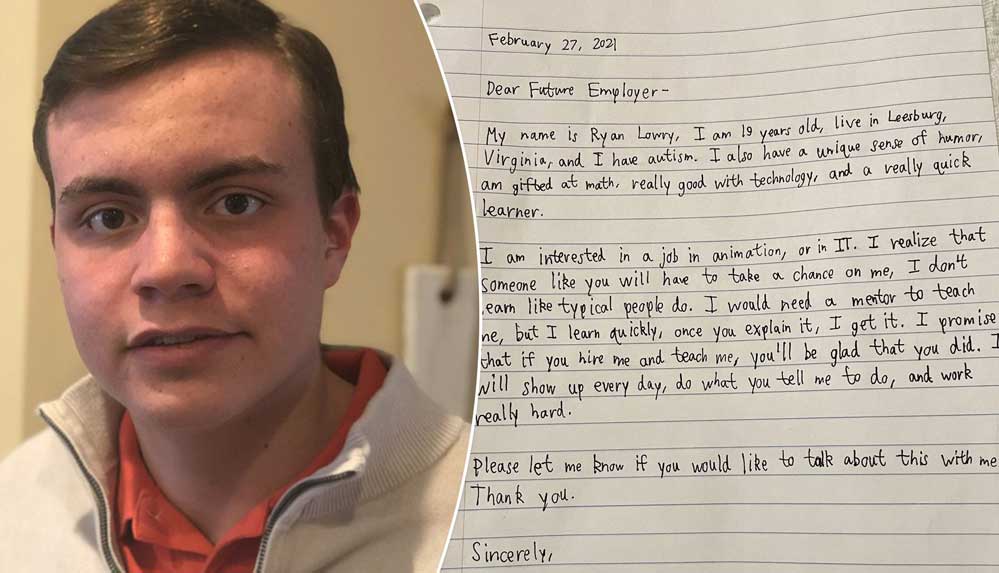 February 27, 2021
Dear Future Employer-
My name is Ryan Lowry, I am 19 years old, live in Leesburg,
Virginia, and I have autism. I also have a unique sense of humor,
am gifted at math, really good with technology, and a really quick
learner.
I am interested in a job in animation, or in IT. I realize that
someone like you will have to take a chance on me, I don't
learn like typical people do. I would need a mentor to teach
me, but I learn quickly, once you explain it, I get it. I promise
that if you hire me and teach me, you'll be glad that you did. I
will show up every day, do what you tell me to do, and work
really hard.
Please let me know if you would like to talk about this with me
Thank you.
Sincerely,